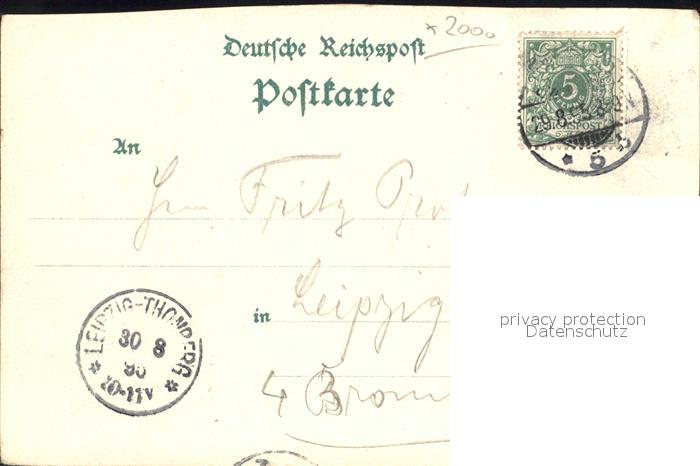 *2000
Deutsche Reichspost
Postkarte
An
Herrn Fritz
in Leipzig
4
5
REICHSPOST
29.8.
* 5
LEIPZIG-THONBERG
30 8
10-11V
privacy protection
Datenschutz